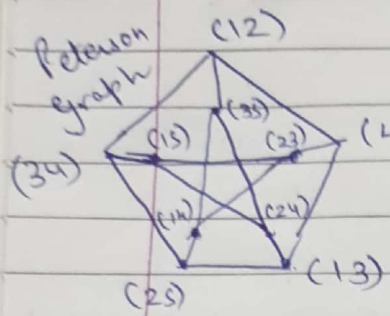 Peterson
graph
(12)
(35)
(15)
(23)
(34)
(14)
(24)
(25)
(13)